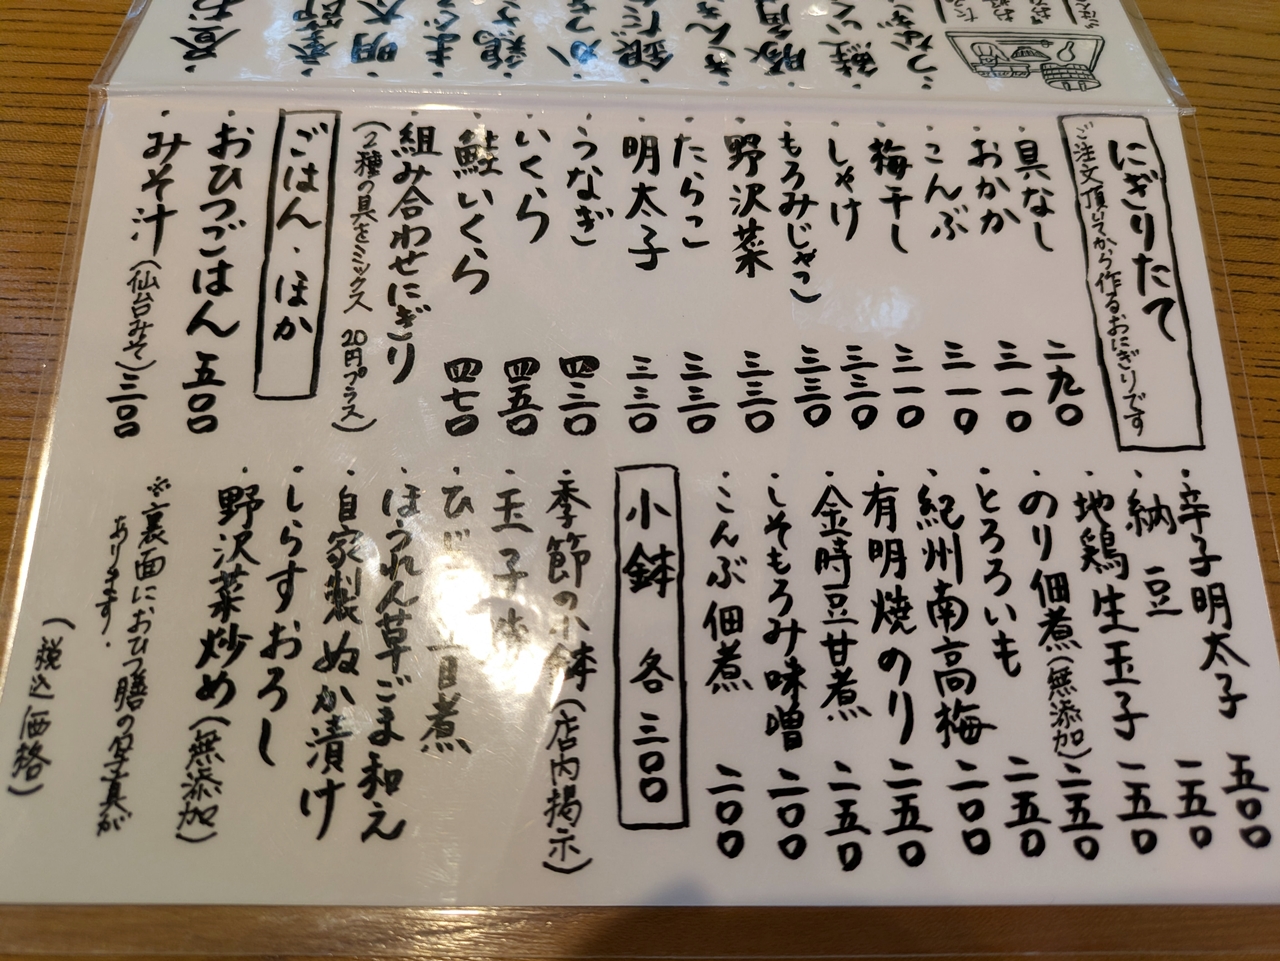 にぎりたて
ご注文頂いてから作るおにぎりです
・具なし 二九〇
・おかか 三一〇
・こんぶ 三一〇
・梅干し 三一〇
・しゃけ 三三〇
・もろみじゃこ 三三〇
・野沢菜 三三〇
・たらこ 三三〇
・明太子 三三〇
・うなぎ 四三〇
・いくら 四五〇
・鮭いくら 四七〇
・組み合わせにぎり
(2種の具をミックス 20円プラス)
ごはん・ほか
・おひつごはん 五〇〇
・みそ汁(仙台みそ) 三〇〇
・辛子明太子 五〇〇
・納豆 二五〇
・地鶏生玉子 一五〇
・のり佃煮(無添加) 二五〇
・とろろいも 二五〇
・紀州南高梅 二〇〇
・有明焼のり 二五〇
・金時豆甘煮 二五〇
・しそもろみ味噌 二〇〇
・こんぶ佃煮 二〇〇
小鉢 各三〇〇
・季節の小鉢(店内掲示)
・玉子
・ひじ 煮
・ほうれん草ごま和え
・自家製ぬか漬け
・しらすおろし
・野沢菜炒め(無添加)
※裏面におひつ膳の写真が
あります。
(税込価格)